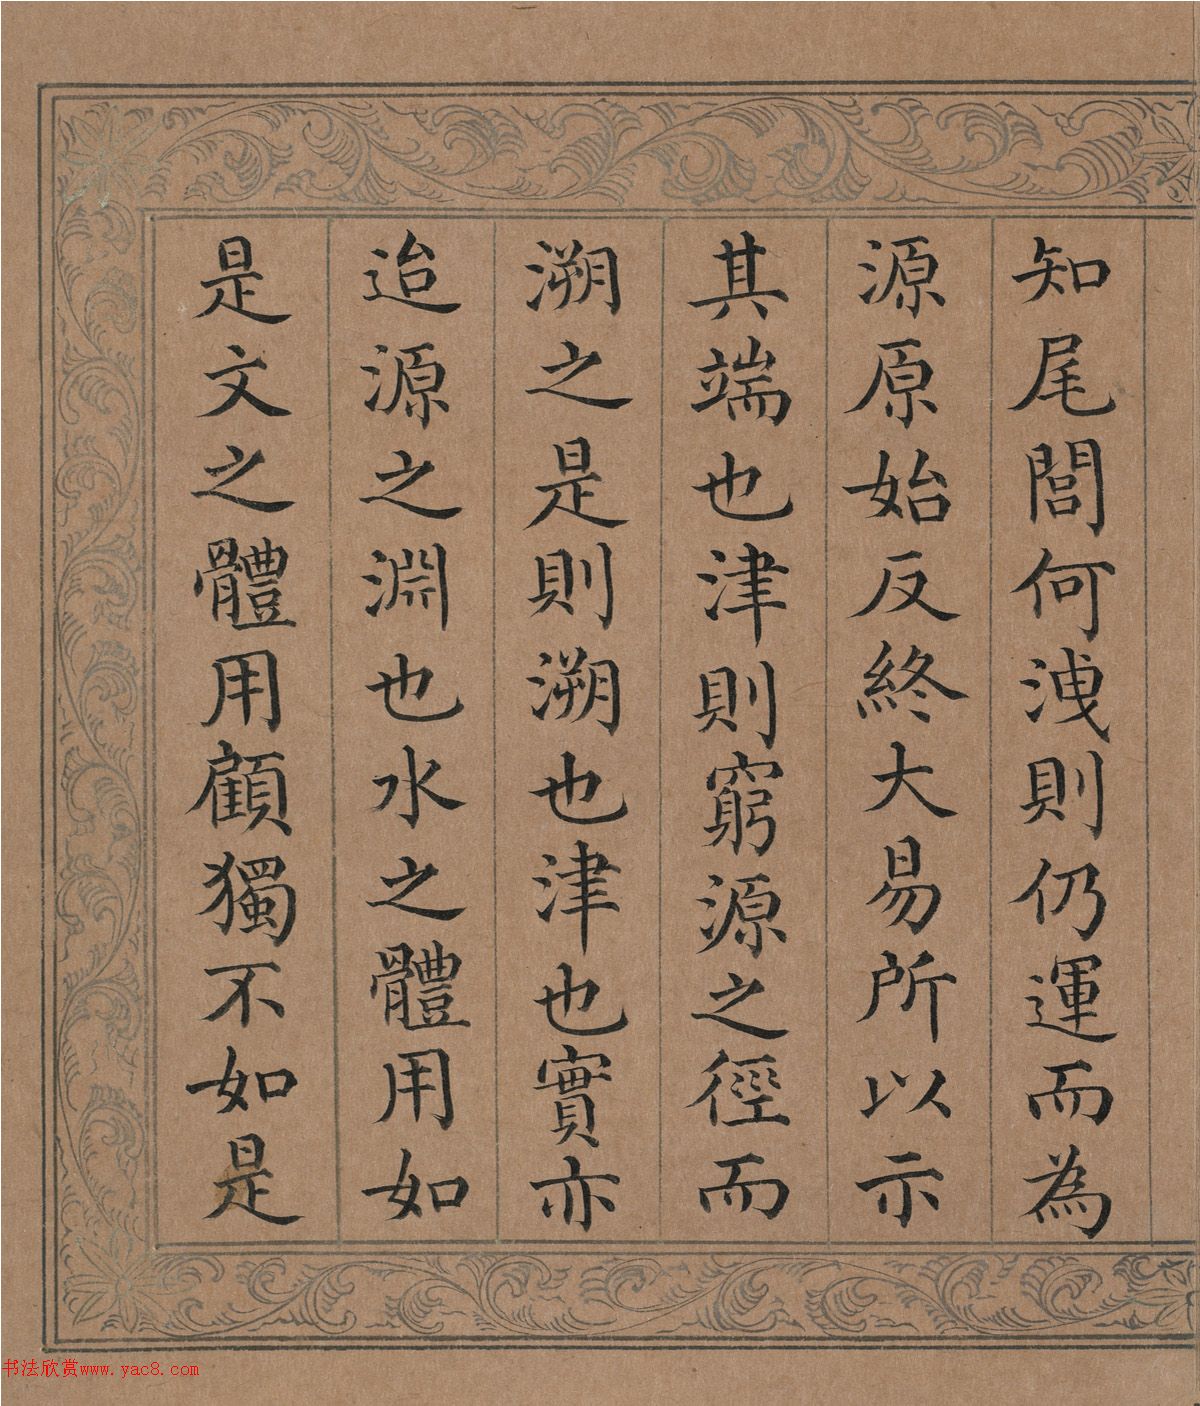 知尾閭何洩則仍運而為
源原始反終大易所以示
其端也津則窮源之徑而
溯之是則溯也津也實亦
迨源之淵也水之體用如
是文之體用顧獨不如是
书法欣赏www.yac8.com